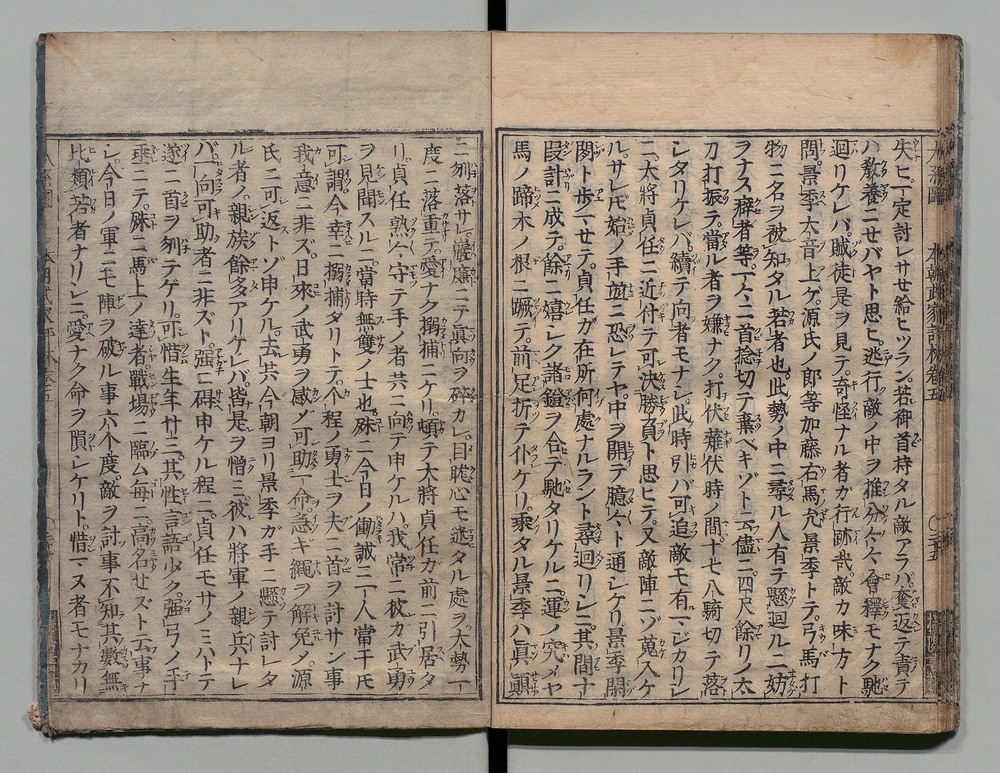 失ヒ一定討レサセ給ヒツラン若御首持タル敵アラハ奪返テ責テ
ハ教養ニセバヤト思ヒ逃行敵ノ中ヲ推分々々會釋モナク馳
迴リケレバ賊徒是ヲ見テ奇怪ナル者ガ行跡哉敵カ味方ト
問景季大音上ゲ源氏ノ郎等加藤右馬允景季トテ弓馬打
物ニ名ヲ被知タル若者也此勢ノ中ニ尋ル人有テ懸迴ルニ妨
ヲナス癖者等一々ニ首捻切テ棄ベキゾト云儘ニ四尺餘リノ太
刀打振テ當ル者ヲ嫌ナク打伏薙伏時ノ間ニ十七八騎切テ落
レタリケレバ續テ向者モナシ此時引バ可追敵モ有マジカリシ
ニ大將貞任ニ近付テ可決勝負ト思ヒテ又敵陣ニゾ蒐入ケ
ルサレ𪜈始ノ手並ニ恐レテヤ中ヲ開テ臆々ト通シケリ景季閑
閑ト歩マセテ貞任ガ在所何處ナルラント尋迴リシニ其間十
段計ニ成テ餘ニ嬉シク諸鐙ヲ合テ馳タリケルニ運ノ究メヤ
馬ノ蹄木ノ根ニ蹶テ前足折テ仆ケリ乘タル景季ハ真顛
ニ刎落サレ巖廉ニテ真向ヲ碎カレ目眩心モ迷タル處ヲ大勢一
度ニ落重テ愛ナク搦捕ニケリ頓テ大將貞任カ前ニ引居タ
リ貞任熟々守テ手ノ者共ニ向テ申ケルハ我常ニ彼カ武勇
ヲ見聞スルニ當時無雙ノ士也殊ニ今日ノ働誠ニ一人當千𪜈
可謂今幸ニ搦捕タリトテ个程ノ勇士ヲ夫ニ首ヲ討サン事
我意ニ非ズ日來ノ武勇ヲ感ゾ可助一命急ギ繩ヲ解免メ源
氏ニ可返トゾ申ケル去共今朝ヨリ景季ガ手ニ懸テ討レタ
ル者ノ親族餘多アリケレバ皆是ヲ憎ミ彼ハ將軍ノ親兵ナレ
バ一向可助者ニ非ズト強ニ碍申ケル程ニ貞任モサノミハトテ
遂ニ首ヲ刎テゲリ可惜生年廿二其性言語少ク強弓ノ手
垂ニテ殊ニ馬上ノ達者戰場ニ臨ム毎ニ高名セズト云事ナ
シ今日ノ軍ニモ陣ヲ破ル事六个度敵ヲ討事不知其數無
比類若者ナリシニ愛ナク命ヲ隕シケリト惜マヌ者モナカリ